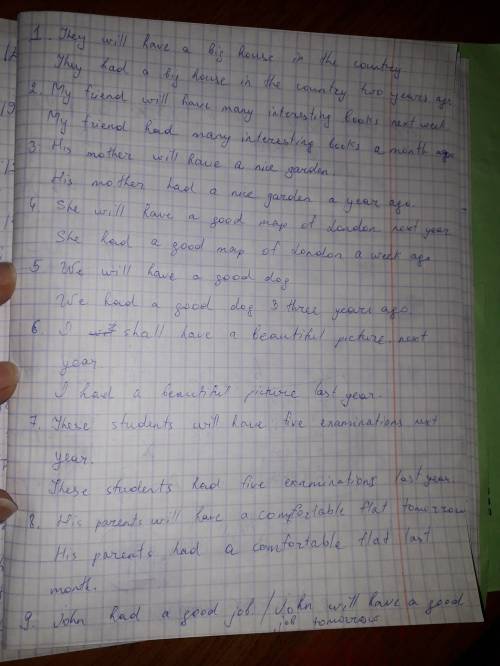 1. They will have a big house in the country
They had a by house in the country two years ago
2. My friend will have many interesting books next week
My friend had many interesting books a month ago
3. His mother will have a nice garden.
His mother had a nice garden a year ago.
4. She will have a good map of London next year
She had a good map of London a week ago
5 We will have a good dog
We had a good dog 3 three years ago.
6. I shall have a beautiful picture next
year
I had a beautiful picture last year.
7. These students will have five examinations next
year.
These students had five examinations last year.
8. His parents will have a comfortable flat tomorrow
His parents had a comfortable flat last
month.
9. John had a good job. / John will have a good
job tomorrow